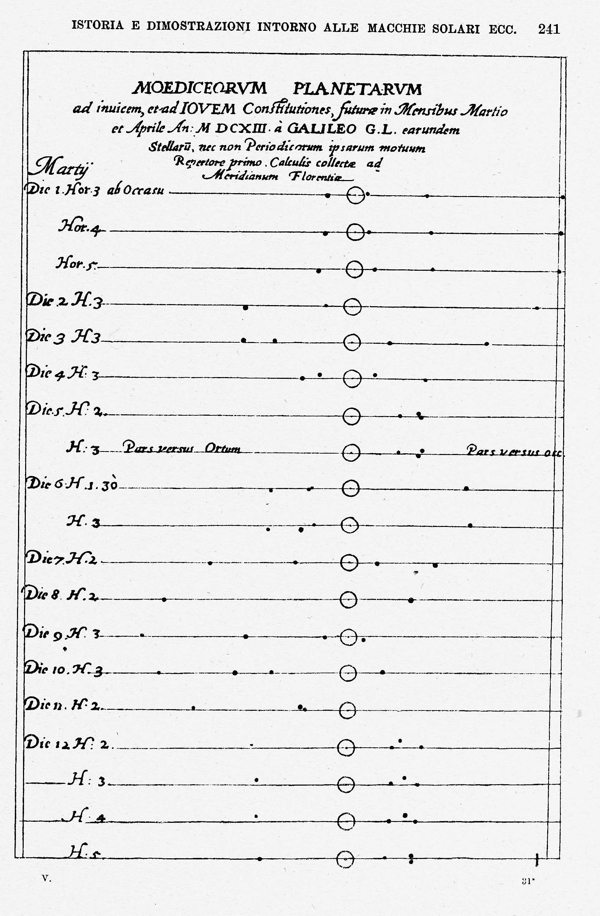 ISTORIA E DIMOSTRAZIONI INTORNO ALLE MACCHIE SOLARI ECC. 241
MOEDICEORVM PLANETARVM
ad inuicem, et ad IOVEM Constitutiones, futuræ in Mensibus Martio
et Aprile An: M DCXIII. à GALILEO G.L. earundem
Stellarū, nec non Periodicorum ipsarum motuum
Repertore primo. Calculis collectæ ad
Meridianum Florentiæ
Martij
Die 1. Hor. 3 ab Occasu
Hor. 4
Hor. 5.
Die 2 H. 3
Die 3 H 3
Die 4 H: 3
Die 5. H: 2.
H: 3 Pars versus Ortum Pars versus occ
Die 6 H. 1. 30
H. 3
Die 7. H. 2
Die 8 H. 2.
Die 9. H: 3
Die 10. H. 3
Die 11. H: 2.
Die 12 H: 2
H: 3
H: 4
H. 5.
V. 31*